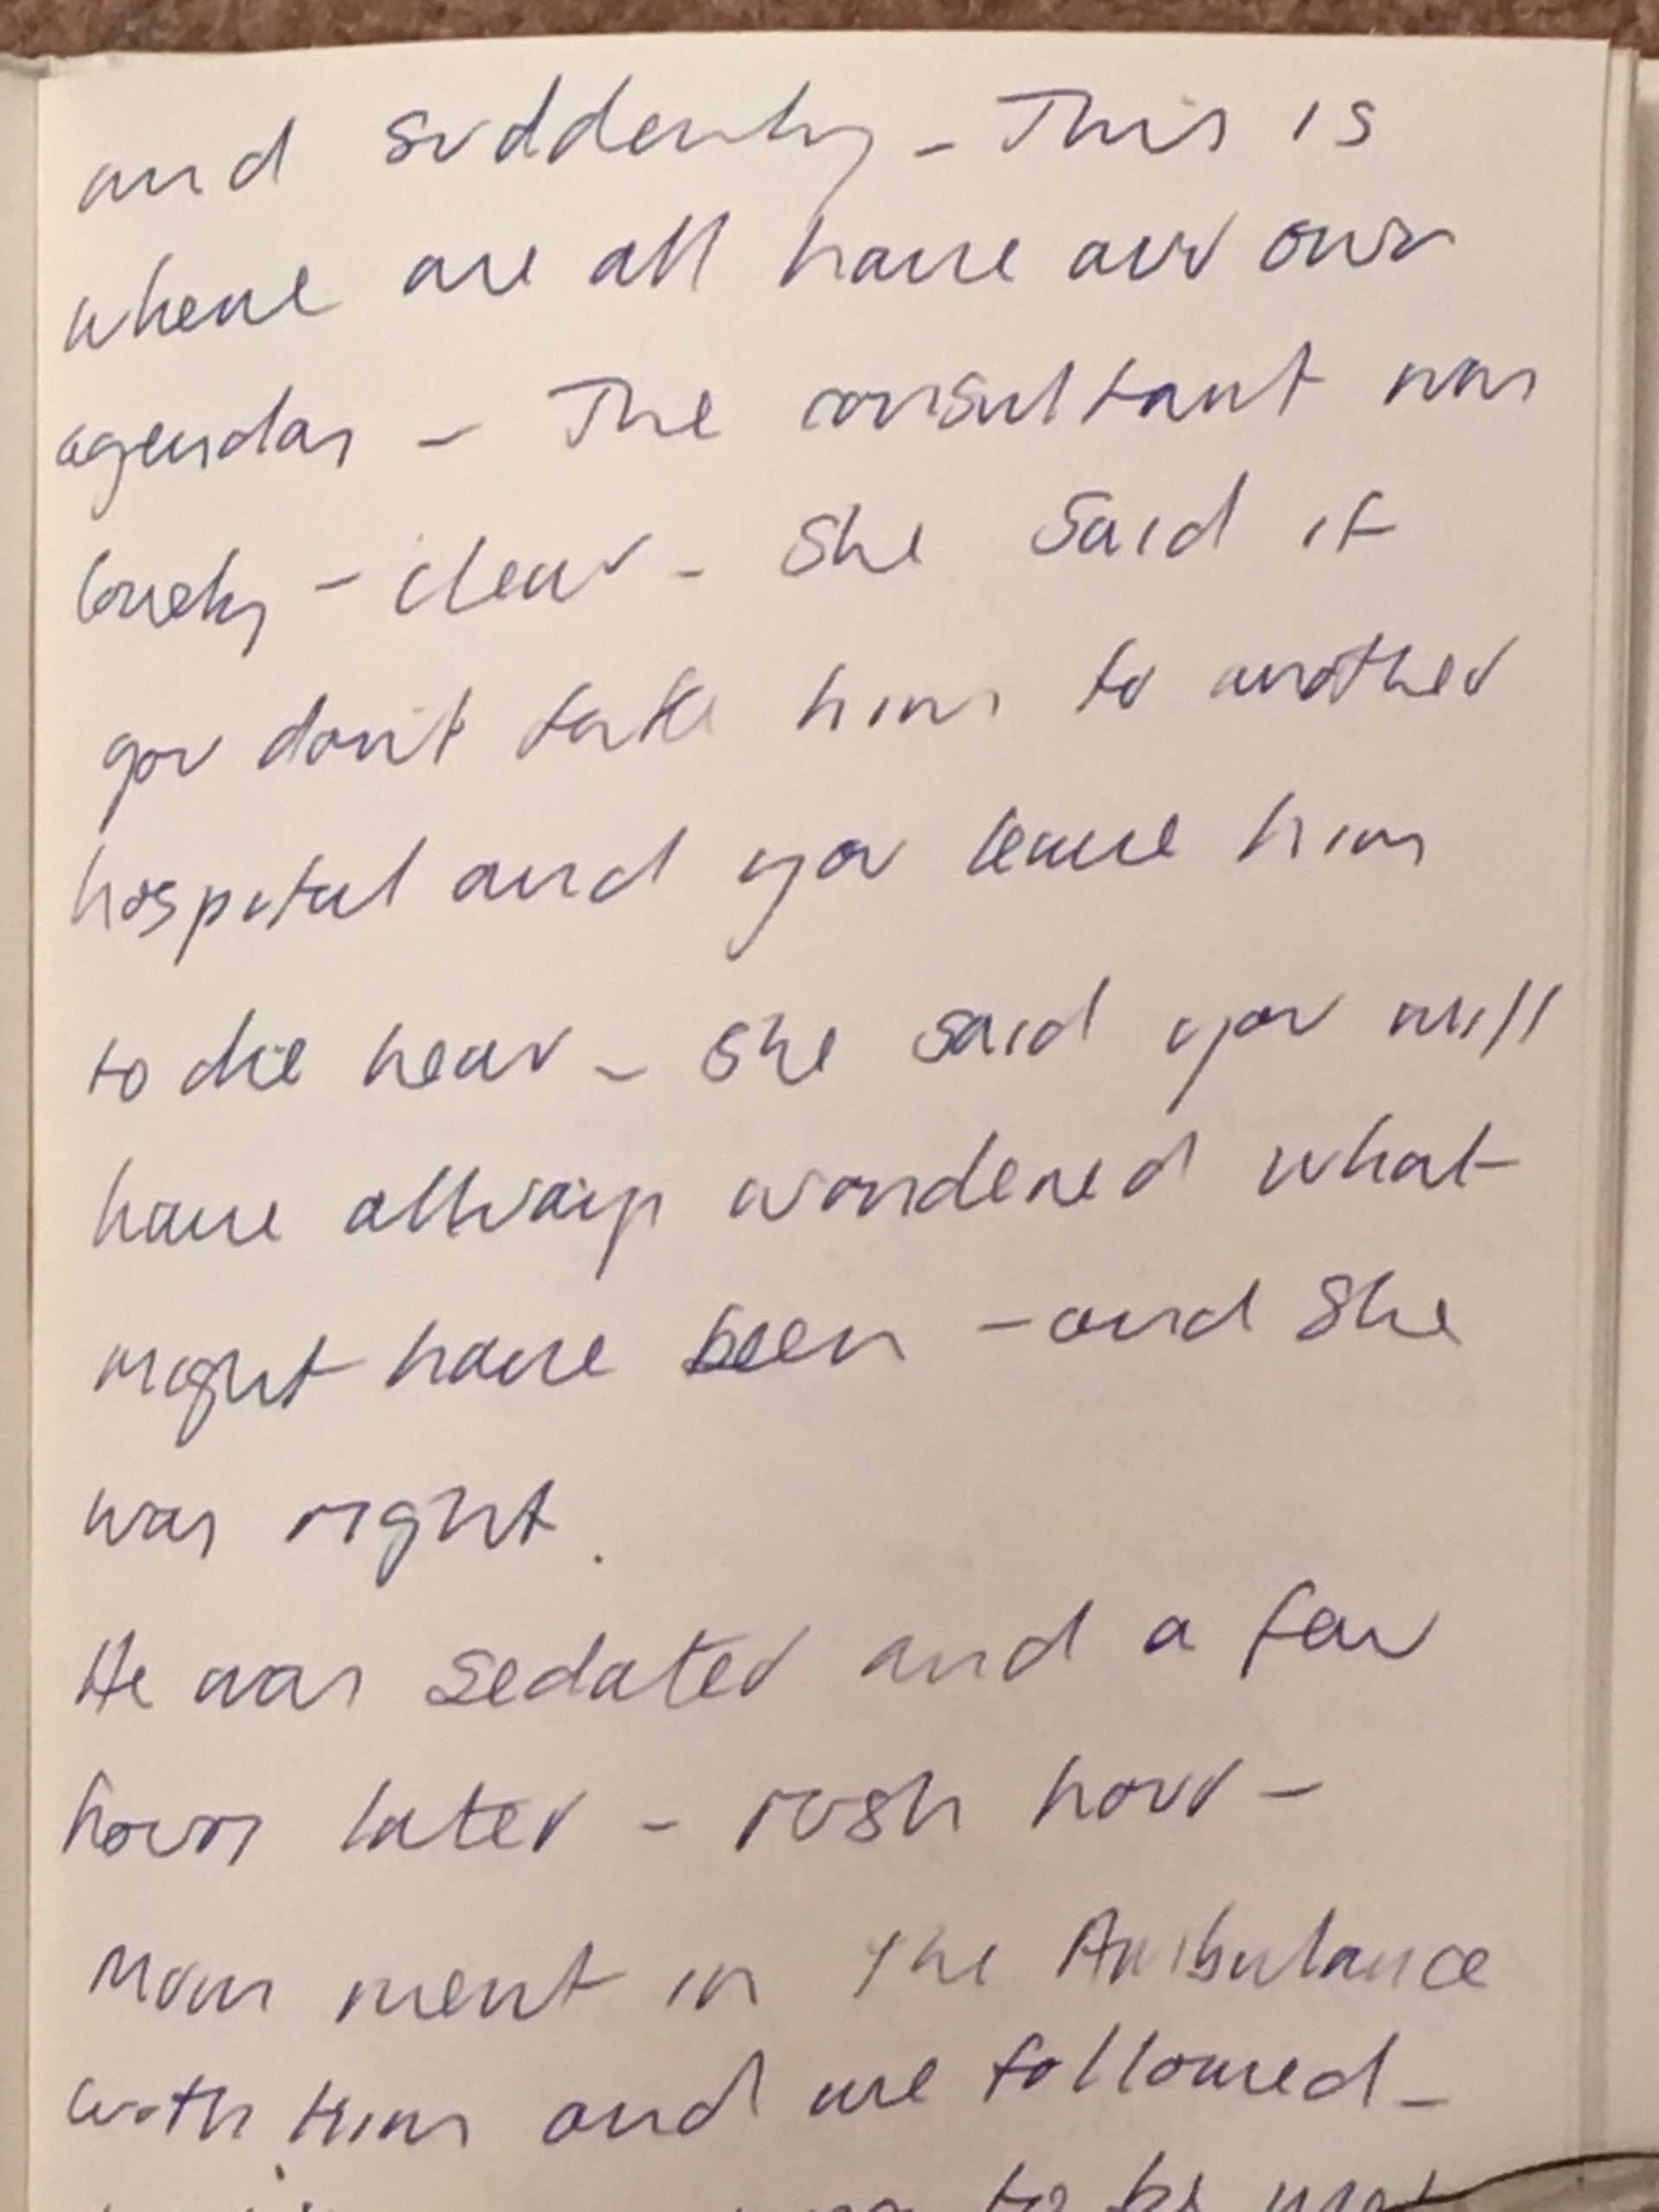 and suddenly - This is
where we all have our own
agendas - The consultant was
lovely - clear - She said if
you don't take him to another
hospital and you leave him
to die hear - She said you will
have allways wondered what
might have been - and She
was right.
He was sedated and a few
hours later - rush hour -
Mum went in the Ambulance
with him and we followed -
to be met